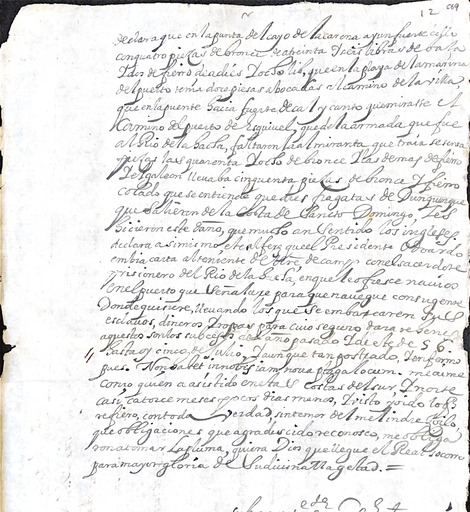 12
declara que en la punta del cayo de la carena ay un fuerte cojio
con quatro piesas de bronce de a treinta y seis libras de bala
y dos de fierro de a diez y ocho lib, que en la plaza de la marina
del puerto tenia dos piesas abocadas al camino de la villa
que en la puente hacia fuerte de cal y canto que mirasse el
camino del puerto de Esquivel, que de la armada que fue
al Rio de la hacha, faltaron la almiranta que traia sesenta
piesas las quarenta y ocho de bronce y las demas de fierro
y el galeon llevaba cinquenta piesas de bronce y fierro
colado que se entiende que tres fragatas de Dunquerque
que salieron de la costa de Sancto Domingo, les
hicieron este daño, que mucho an sentido los ingleses
declara asimismo el alferez que el Presidente Oduardo
embia carta al teniente de Mtre. de campo con el sacerdote
prisionero del Rio de la hacha, en que le ofrese navios
en el puerto que señalase para que navegue con su gente
Donde quisiere, llevando los que se embarcaren sus
esclavos, dineros, y ropas para cuio seguro dara rehenes
aquestos son los sucessos del año pasado y de este de 56.
hasta oy cinco de Julio, y aunque tan postrado, y enfermo
pues. Non habet in nobis iam nova plaga locum. me anime
como quien a asistido en estas costas del sur y norte
casi catorce meses pocos dias manos, y visto quido lo q
refiero, con toda verdad, sin temor del melindre
que obligaciones que agradescido reconosco, me obliga
ron a tomar la pluma, quiera Dios que llegue el Real socorro
para mayor gloria de su divina Magestad. =